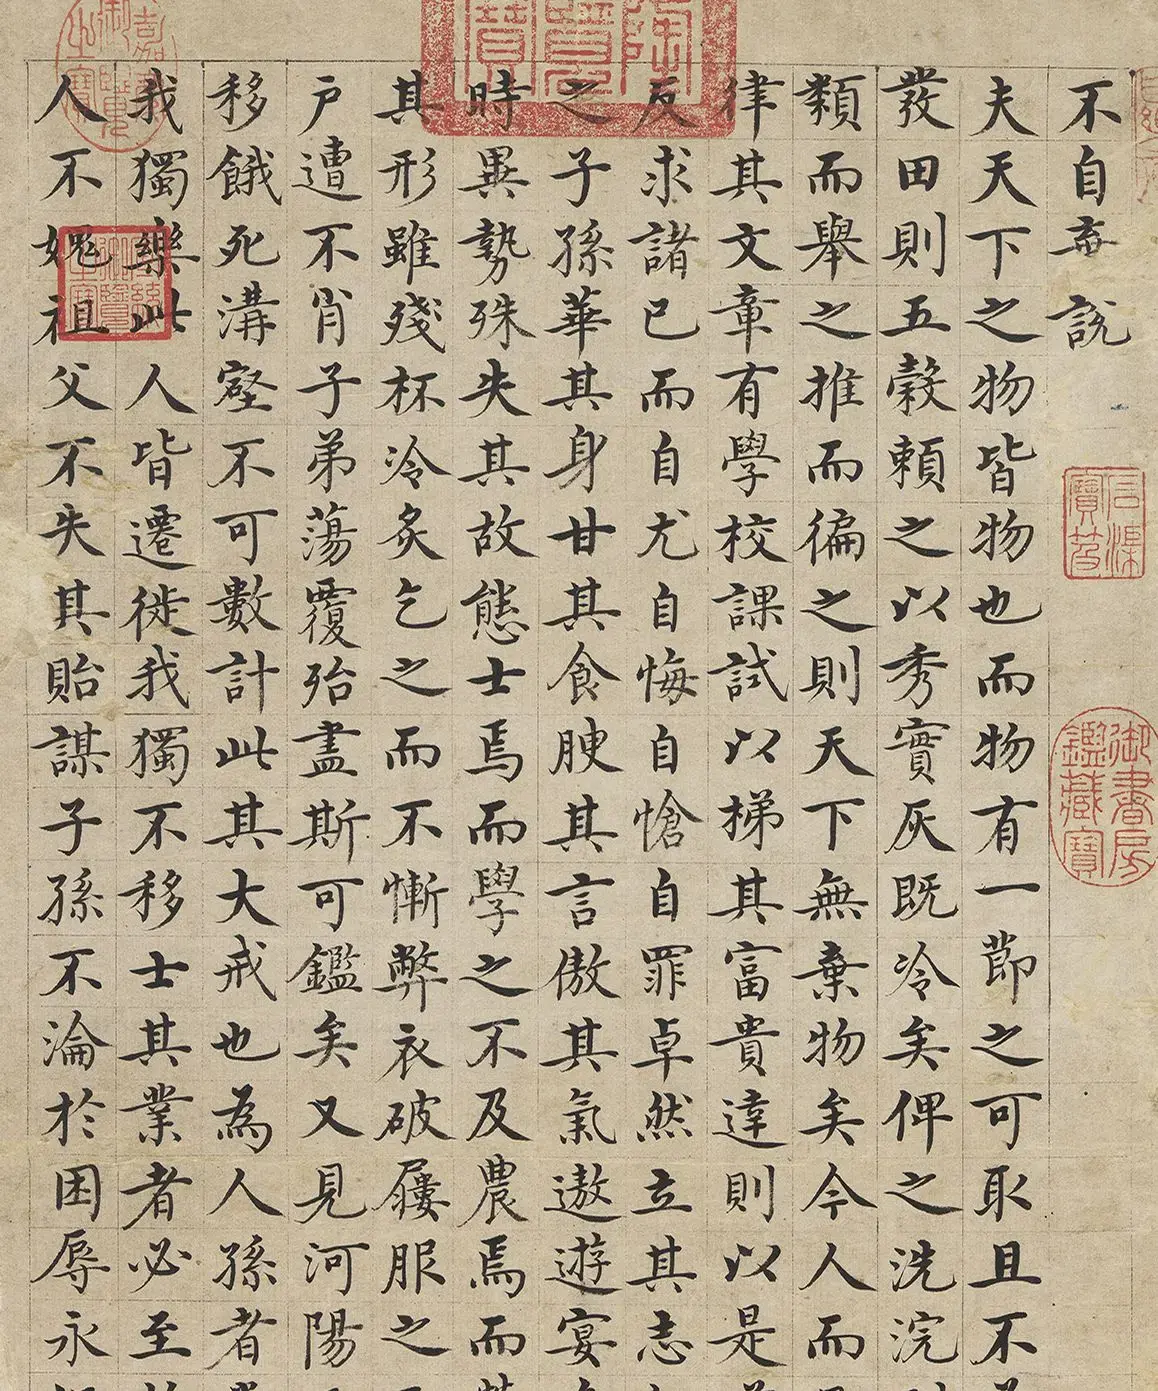 不自棄說
夫天下之物皆物也而物有一節之可取且不
發田則五穀賴之以秀實灰既冷矣俾之洗浣
類而舉之推而徧之則天下無棄物矣今人而
律其文章有學校課試以梯其富貴達則以是
反求諸己而自尤自悔自愴自罪卓然立其志
之子孫華其身甘其食腴其言傲其氣遨遊宴
時異勢殊失其故態士焉而學之不及農焉而
其形雖殘杯冷炙乞之而不慚弊衣破屨服之
戶遭不肖子弟蕩覆殆盡斯可鑑矣又見河陽
移餓死溝壑不可數計此其大戒也為人孫者
我獨樂此人皆遷徙我獨不移士其業者必至
人不媿祖父不失其貽謀子孫不淪於困辱永
嘉慶御覽之寶
御書房鑑藏寶